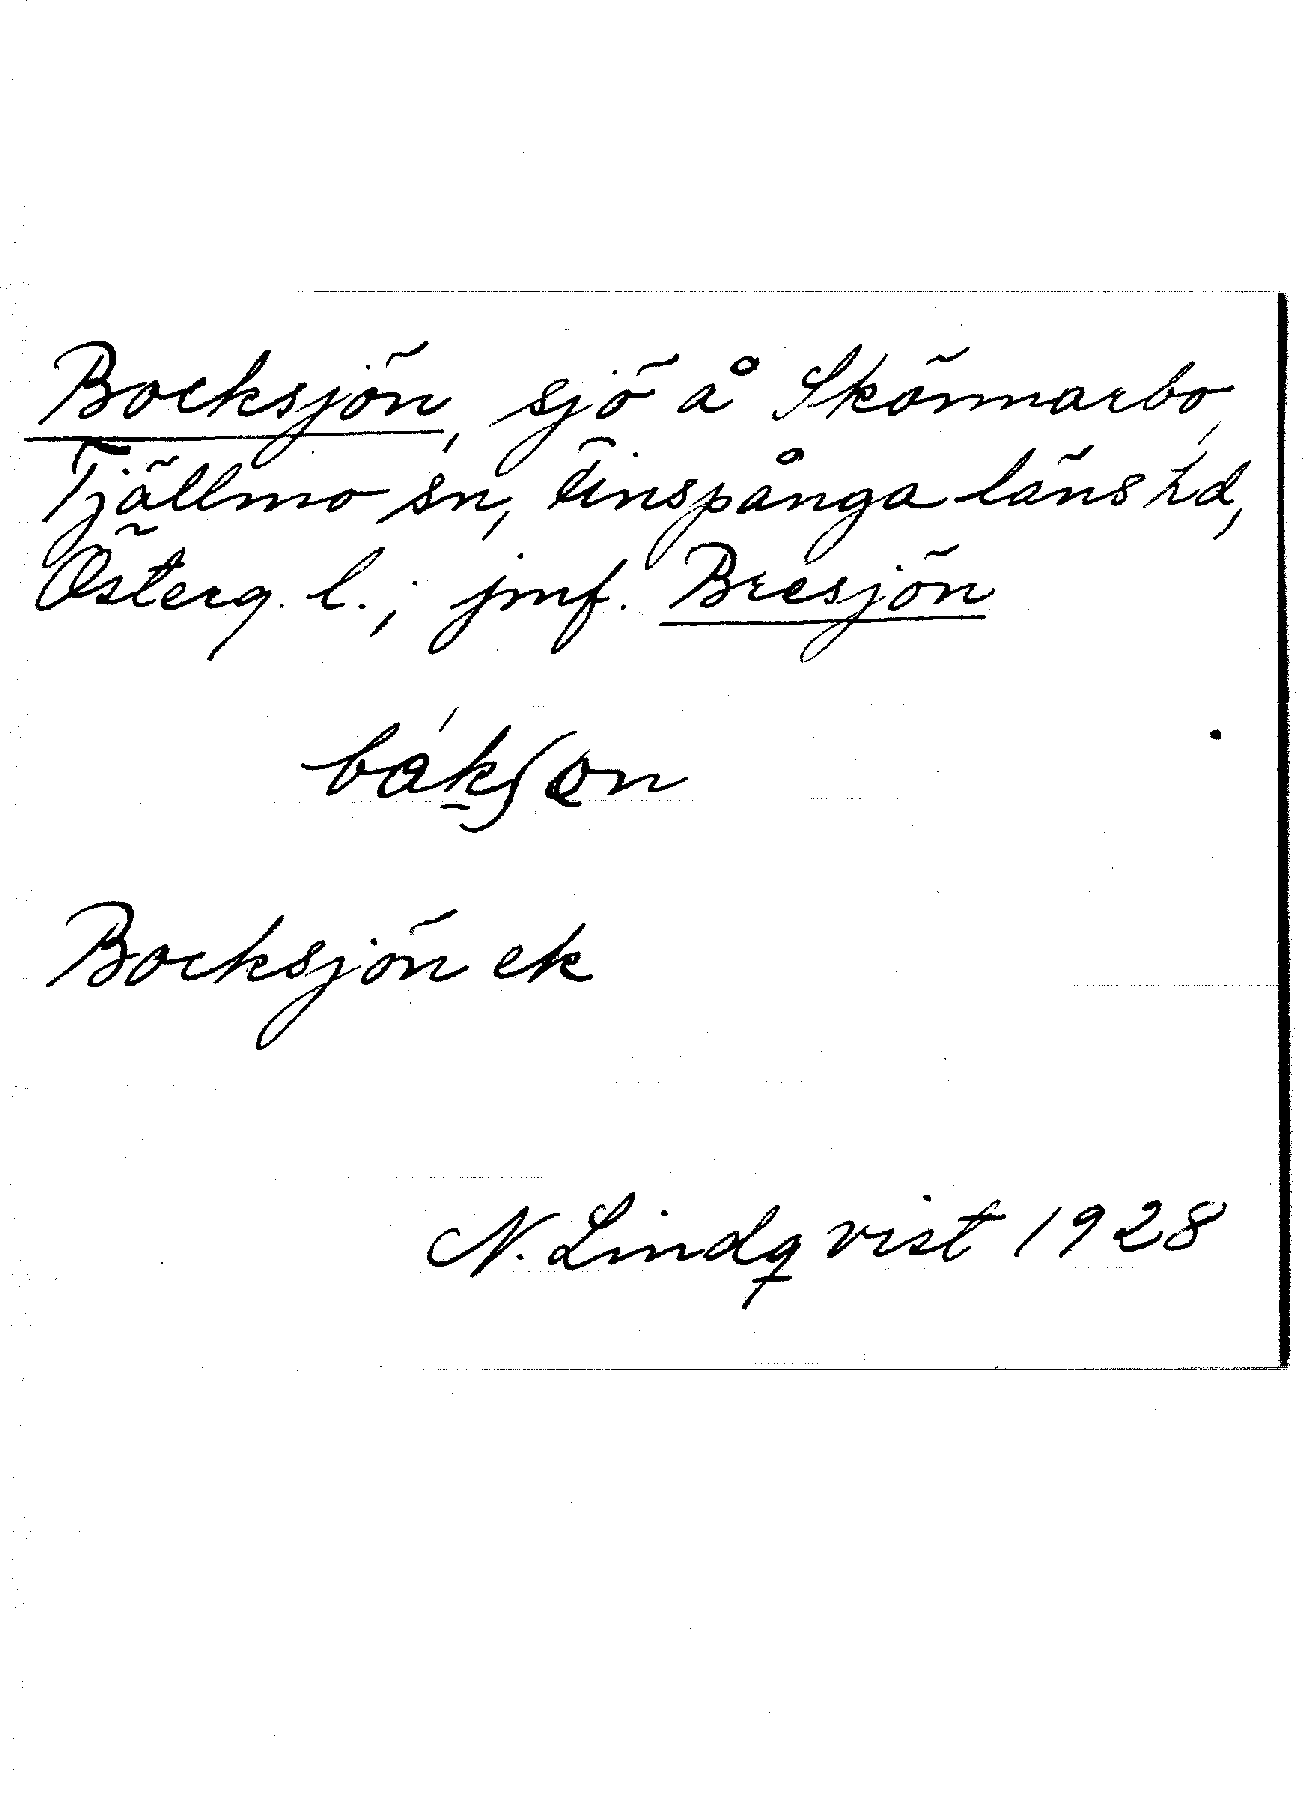 Bocksjön, sjö å Skönnarbo,
Tjällmo sn, Finspånga läns hd,
Österg. l.; jmf. Bresjön
Bocksjön ek
N. Lindqvist 1928